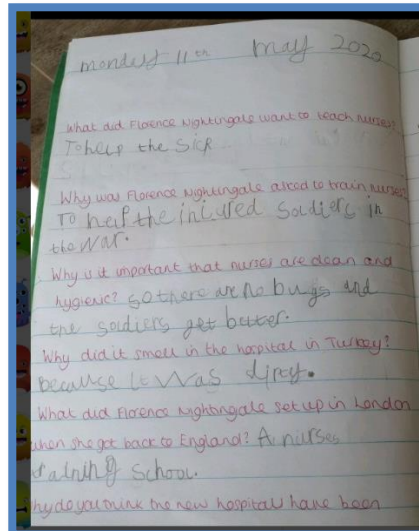 monday 11th may 2020
What did Florence Nightingale want to teach nurses?
To help the sick
Why was Florence Nightingale asked to train nurses?
TO help the injured Soldiers in
the war.
Why is it important that nurses are clean and
hygienic? so there are no bugs and
the soldiers get better.
Why did it smell in the hospital in Turkey?
because it was dirty.
What did Florence Nightingale set up in London
when she got back to England? A nurses
training School.
hy do you think the new hospital have been